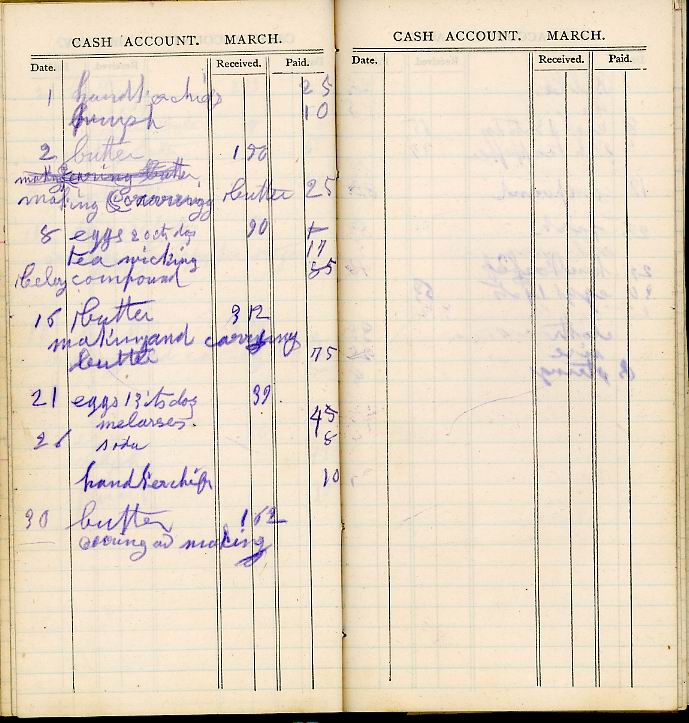 CASH ACCOUNT. MARCH.
Date. Received. Paid.
1 handkerchifs 25
10
2 butter 1 90
making butter 25
8 eggs 2 cts doz 90
tea wicking 17
compound 35
16 butter 3 12
making and carrying
butter 75
21 eggs 13 cts doz 39
melasses 45
26 soda 8
handkerchif 10
30 butter 1 62
making
CASH ACCOUNT. MARCH.
Date. Received. Paid.